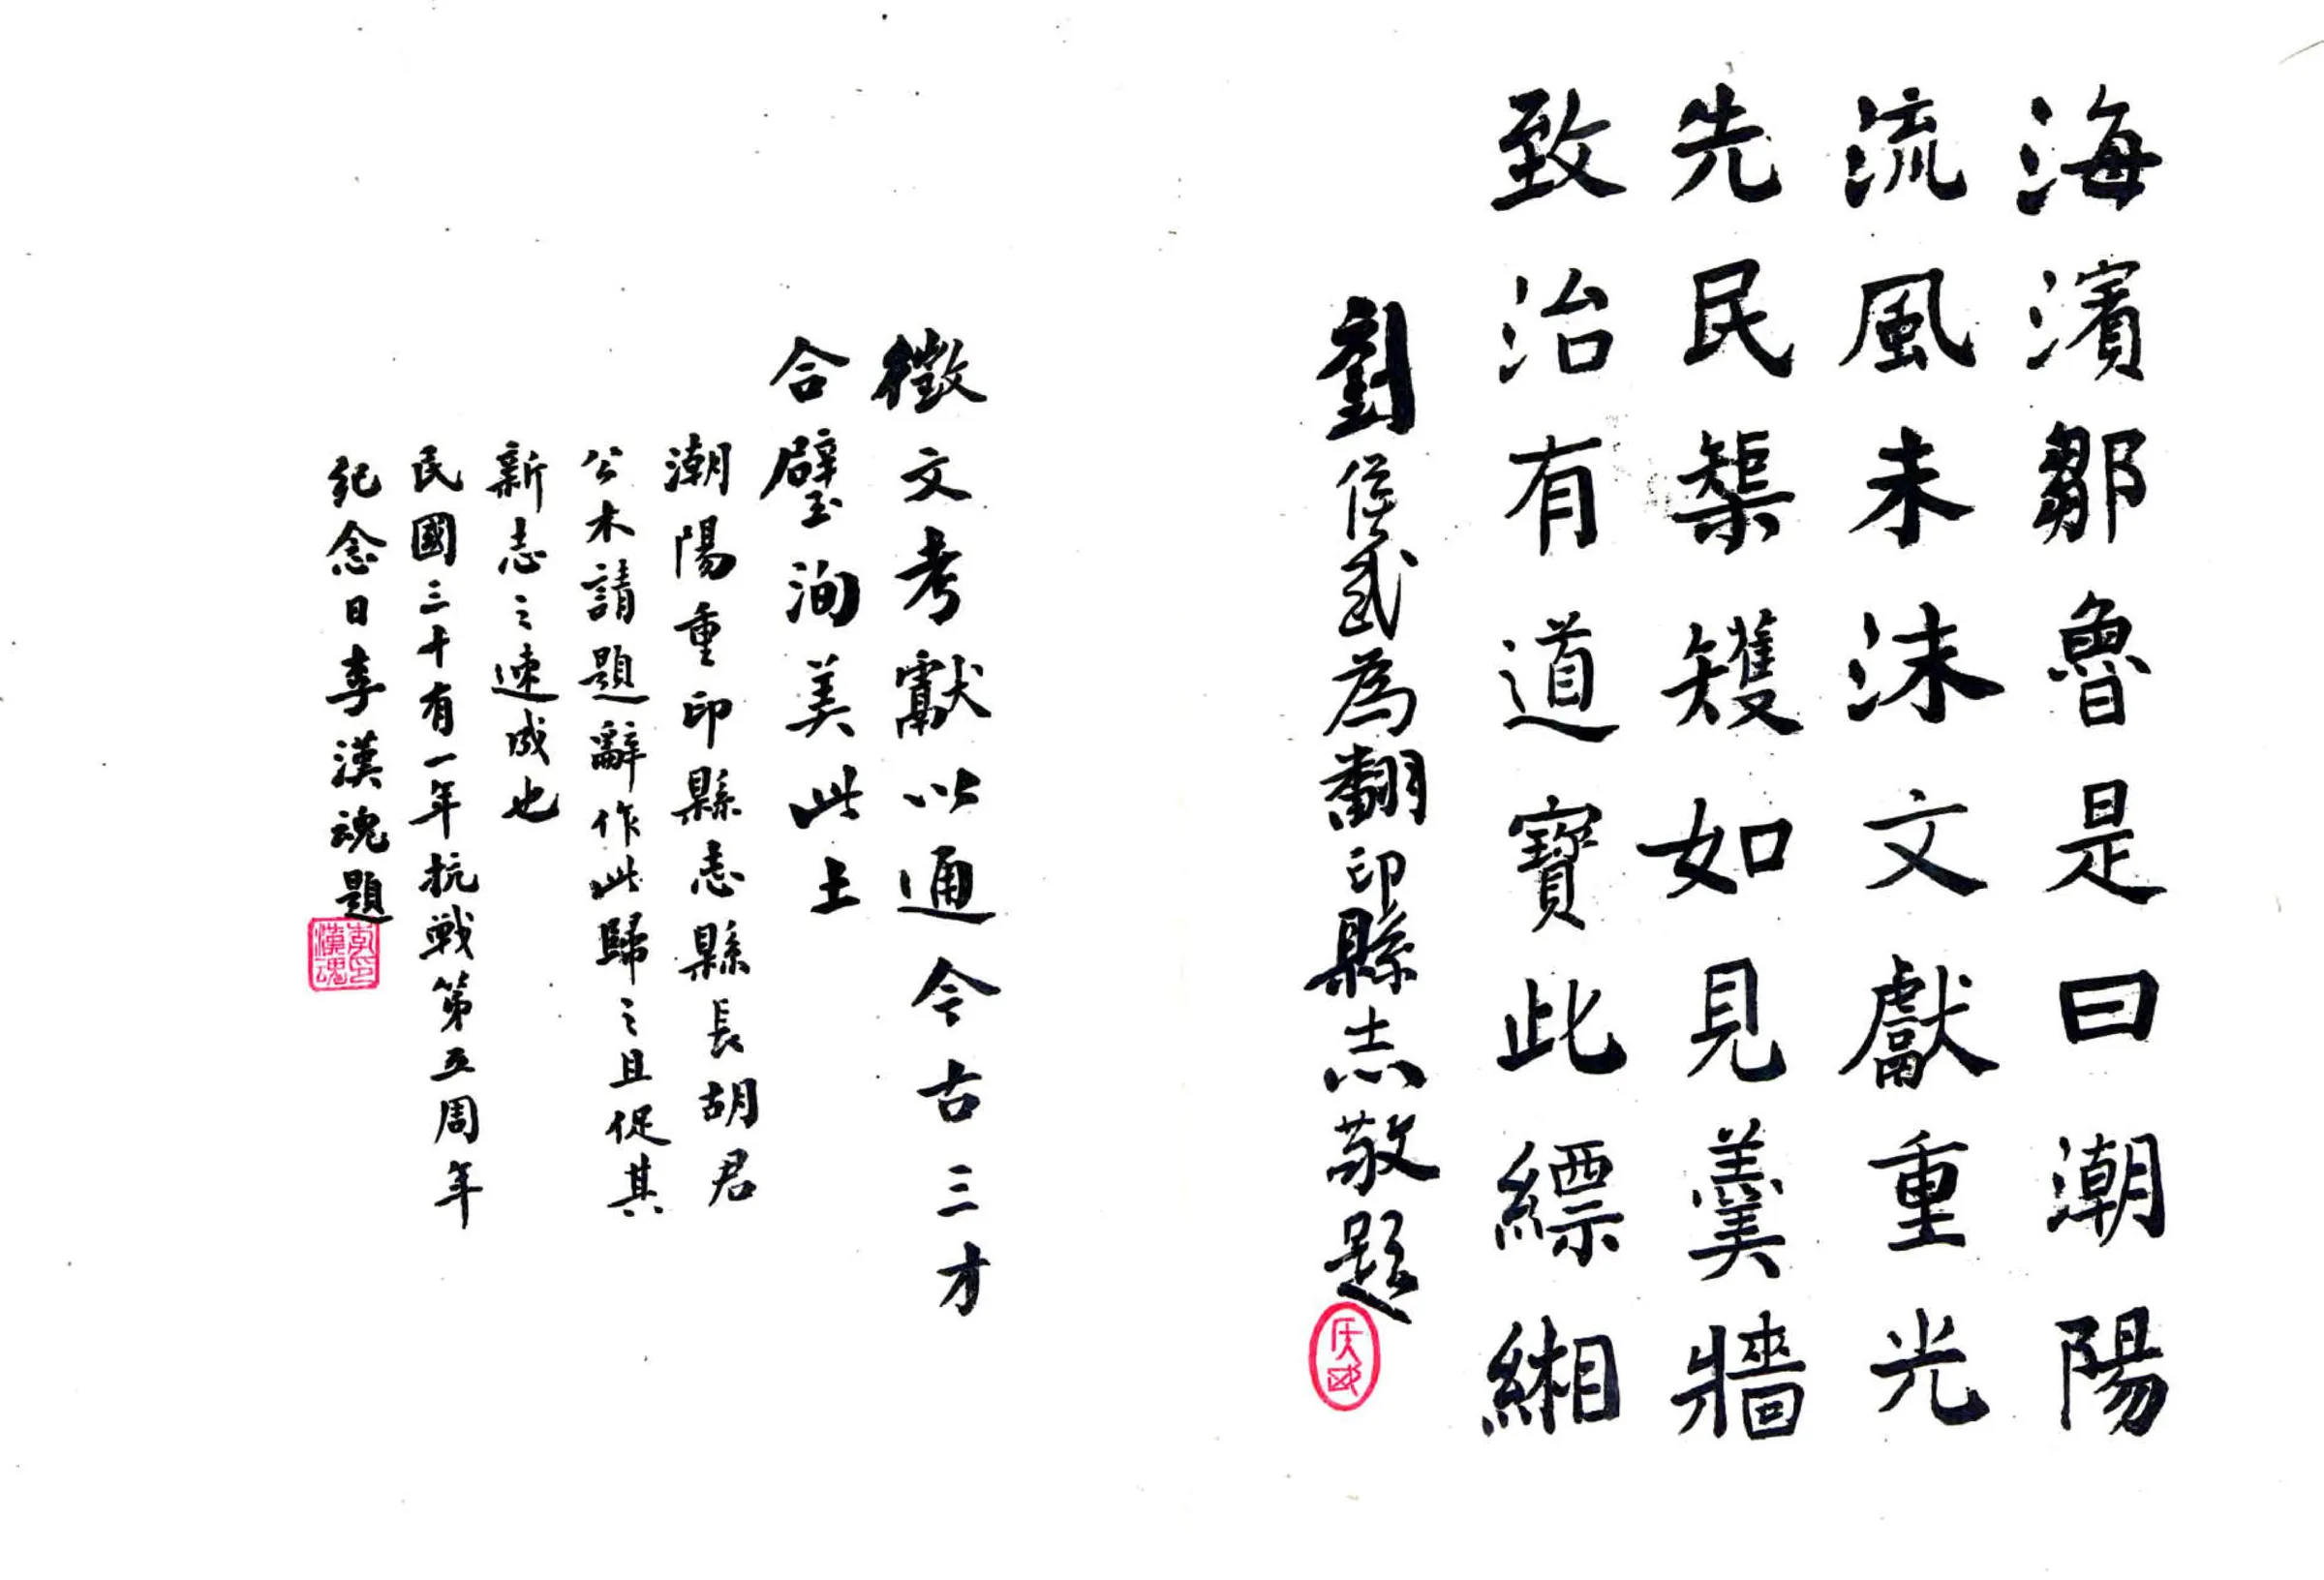 海濱鄒魯是曰潮陽
流風未沬文獻重光
先民榘矱如見羹牆
致治有道寶此縹緗
劉侯武為翻印縣志敬題
徵文考獻以通今古三才
合璧洵美此土
潮陽重印縣志縣長胡君
公木請題辭作此歸之且促其
新志之速成也
民國三十有一年抗戰第五周年
紀念日李漢魂題
李印漢魂